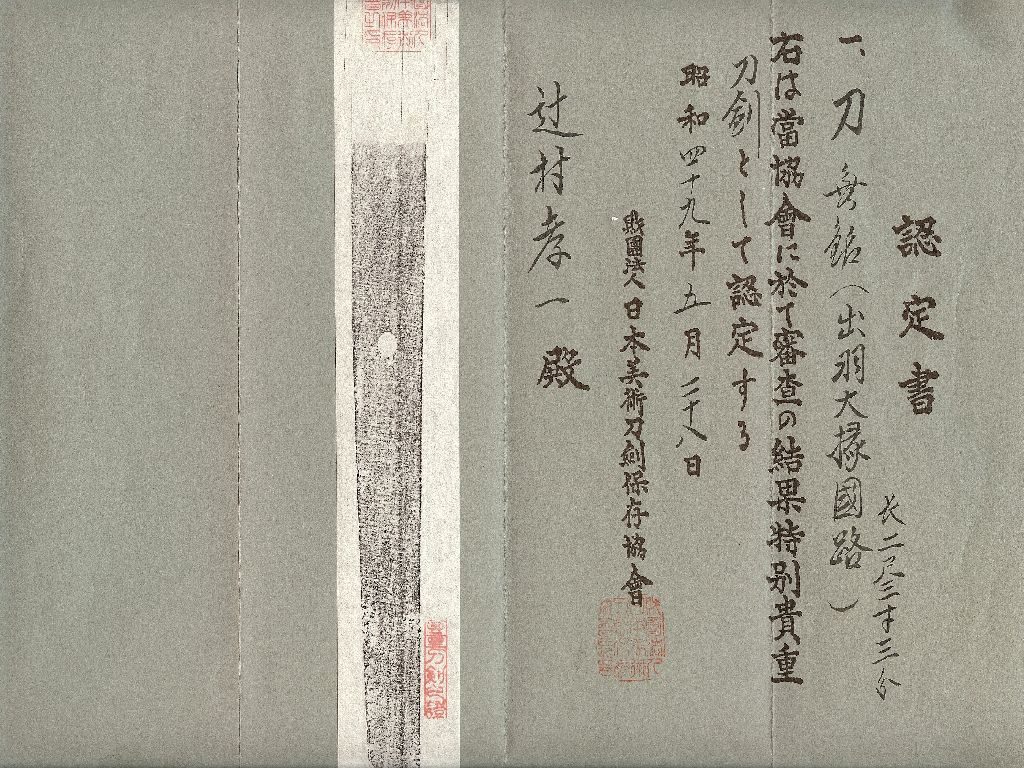 認定書
一、刀 無銘(出羽大掾國路)
長二尺三寸三分
右は當協會に於て審査の結果特別貴重
刀劍として認定する
昭和四十九年五月二十八日
財團法人日本美術刀劍保存協會
辻村孝一殿